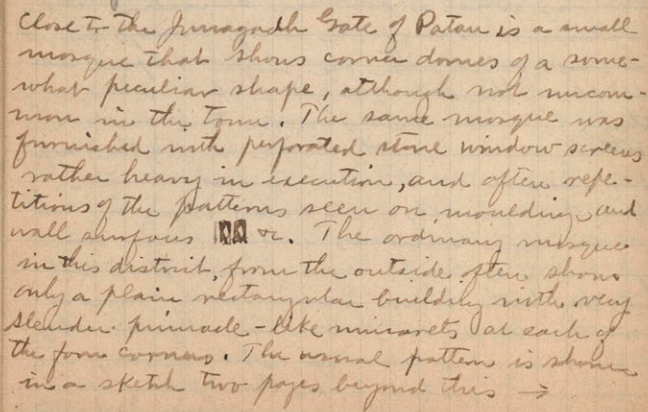 Close to the Junagadh Gate of Patan is a small
mosque that shows corner domes of a some-
what peculiar shape, although not uncom-
mon in the town. The same mosque was
furnished with perforated stone window screens
rather heavy in execution, and often repe-
titions of the patterns seen on moulding and
wall surfaces &c. The ordinary mosque
in this district, from the outside often shows
only a plain rectangular building with very
slender pinnacle-like minarets at each of
the four corners. The usual pattern is shown
in a sketch two pages beyond this →